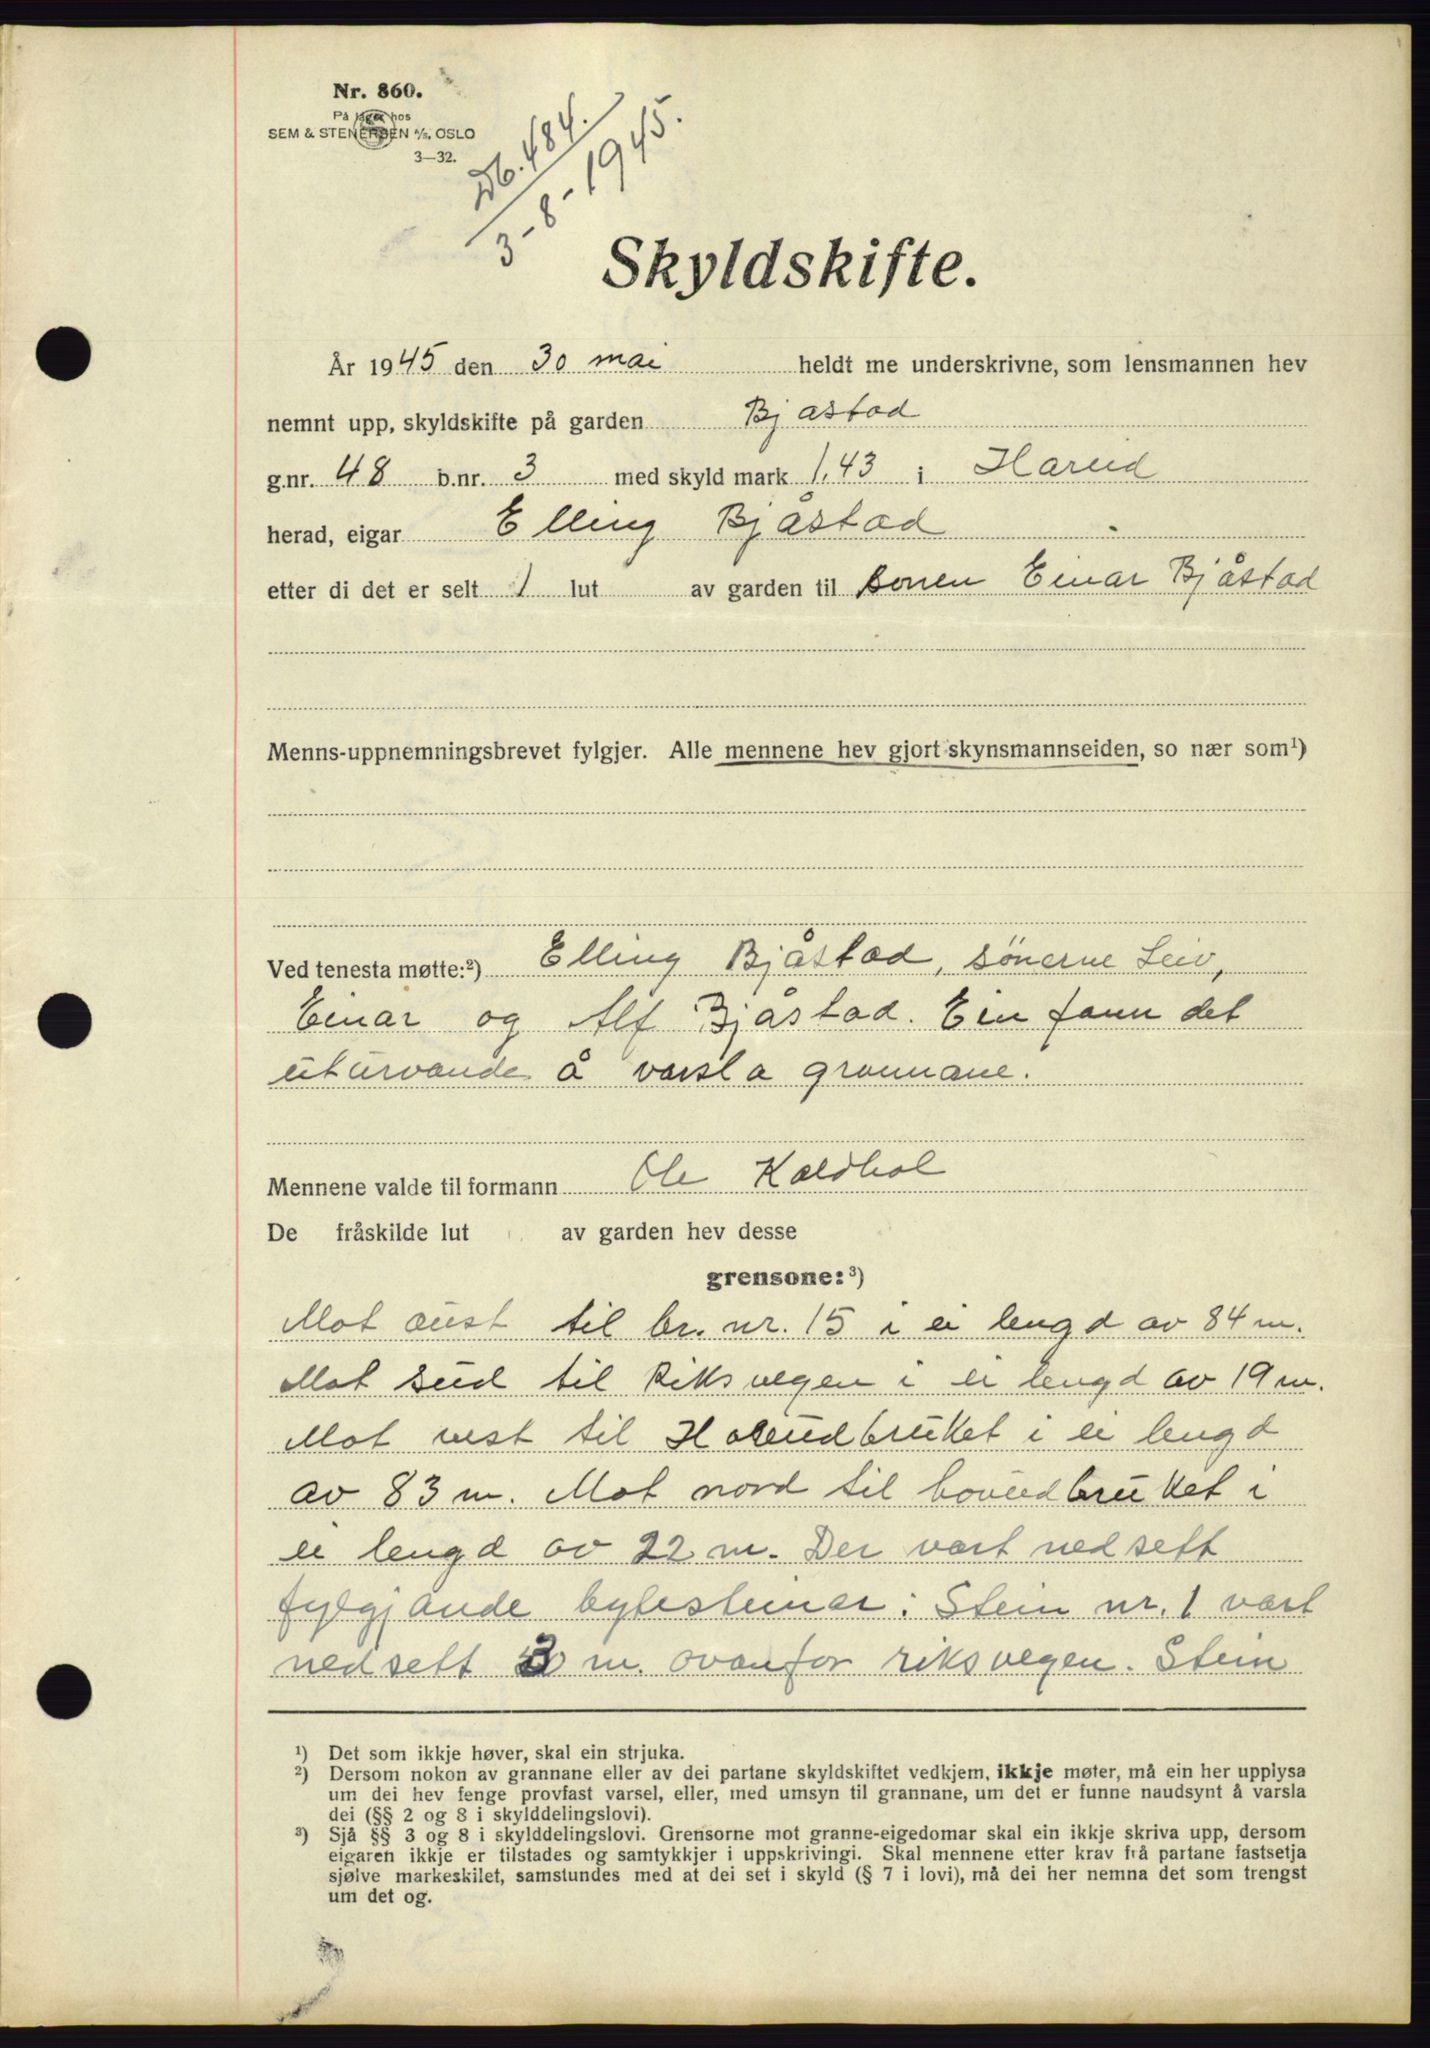 Nr. 860.
På lager hos
SEM & STENERSEN A/S, OSLO
3—32.
Db. 484.
3-8-1945.
Skyldskifte.
År 1945 den 30 mai heldt me underskrivne, som lensmannen hev
nemnt upp, skyldskifte på garden Bjåstad
g.nr. 48 b.nr. 3 med skyld mark 1,43 i Hareid
herad, eigar Elling Bjåstad
etter di det er selt 1 lut av garden til sonen Einar Bjåstad
Menns-uppnemningsbrevet fylgjer. Alle mennene hev gjort skynsmannseiden, so nær som¹)
Ved tenesta møtte:²) Elling Bjåstad, sönerne Leiv,
Einar og Alf Bjåstad. Ein fann det
uturvande å varsla grannane.
Mennene valde til formann Ole Kaldhol
De fråskilde lut av garden hev desse
grensone:³)
Mot aust til br. nr. 15 i ei lengd av 84 m.
Mot sud til Riksvegen i ei lengd av 19 m.
Mot vest til Hovudbruket i ei lengd
av 83 m. Mot nord til hovudbruket i
ei lengd av 22 m. Der vart nedsett
fylgjande bytesteinar: Stein nr. 1 vart
nedsett 3 m. ovanfor riksvegen. Stein
¹) Det som ikkje høver, skal ein strjuka.
²) Dersom nokon av grannane eller av dei partane skyldskiftet vedkjem, ikkje møter, må ein her upplysa
um dei hev fenge provfast varsel, eller, med umsyn til grannane, um det er funne naudsynt å varsla
dei (§§ 2 og 8 i skylddelingslovi).
³) Sjå §§ 3 og 8 i skylddelingslovi. Grensorne mot granne-eigedomar skal ein ikkje skriva upp, dersom
eigaren ikkje er tilstades og samtykkjer i uppskrivingi. Skal mennene etter krav frå partane fastsetja
sjølve markeskilet, samstundes med at dei set i skyld (§ 7 i lovi), må dei her nemna det som trengst
um det og.